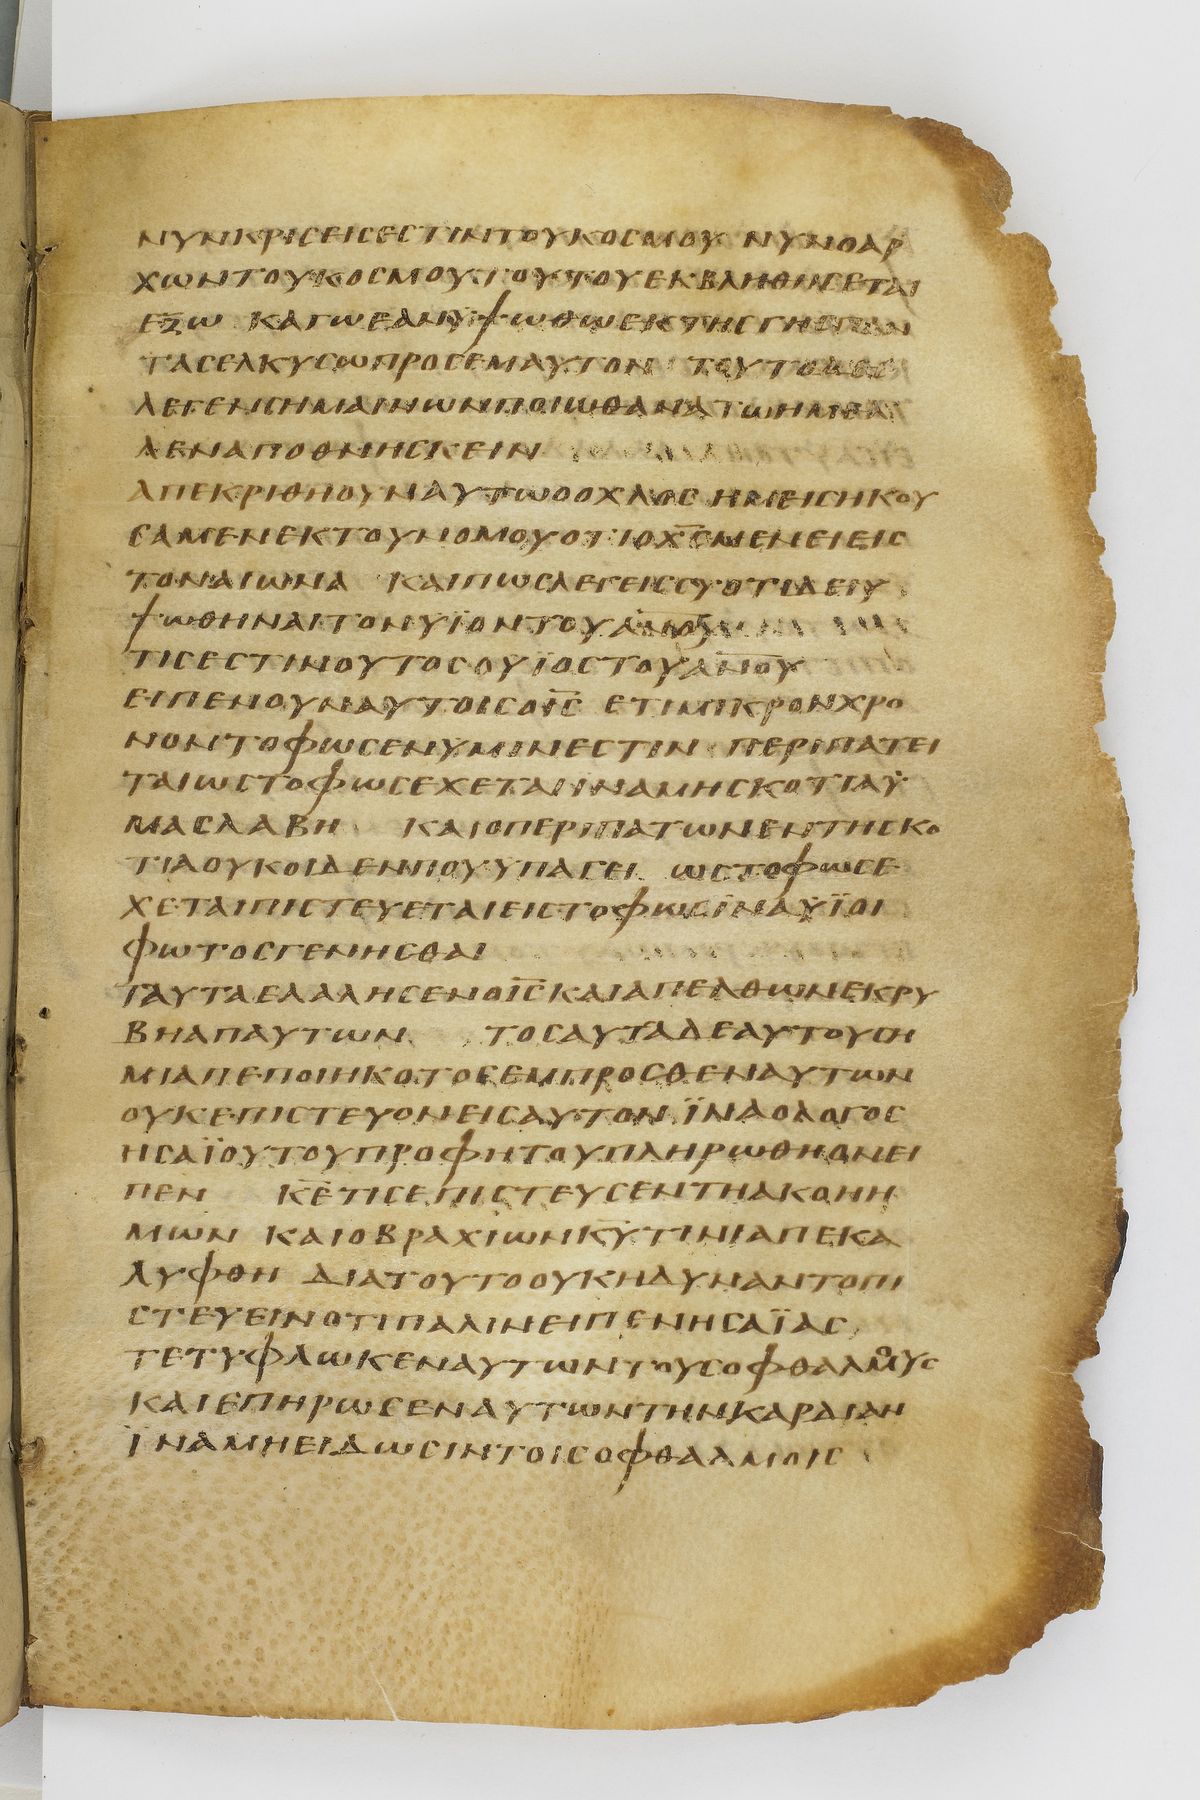 ΝΥΝΚΡΙΣΕΙΣΕΣΤΙΝΤΟΥΚΟΣΜΟΥ ΝΥΝΟΑΡ
ΧΩΝΤΟΥΚΟΣΜΟΥΤΟΥΤΟΥΕΚΒΛΗΘΗΣΕΤΑΙ
ΕΞΩ ΚΑΓΩΕΑΝΥΨΩΘΩΕΚΤΗΣΓΗΣΠΑΝ
ΤΑΣΕΛΚΥΣΩΠΡΟΣΕΜΑΥΤΟΝ ΤΟΥΤΟΔΕΕ
ΛΕΓΕΝΣΗΜΑΙΝΩΝΠΟΙΩΘΑΝΑΤΩΗΜΕΛ
ΛΕΝΑΠΟΘΝΗΣΚΕΙΝ
ΑΠΕΚΡΙΘΗΟΥΝΑΥΤΩΟΟΧΛΟΣ ΗΜΕΙΣΗΚΟΥ
ΣΑΜΕΝΕΚΤΟΥΝΟΜΟΥΟΤΙΟΧ̅Σ̅ΜΕΝΕΙΕΙΣ
ΤΟΝΑΙΩΝΑ ΚΑΙΠΩΣΛΕΓΕΙΣΣΥΟΤΙΔΕΙΥ
ΨΩΘΗΝΑΙΤΟΝΥΪΟΝΤΟΥΑ̅Ν̅Ο̅Υ̅
ΤΙΣΕΣΤΙΝΟΥΤΟΣΟΥΪΟΣΤΟΥΑ̅Ν̅Ο̅Υ̅
ΕΙΠΕΝΟΥΝΑΥΤΟΙΣΟΙ̅Σ̅ ΕΤΙΜΙΚΡΟΝΧΡΟ
ΝΟΝΤΟΦΩΣΕΝΥΜΙΝΕΣΤΙΝ ΠΕΡΙΠΑΤΕΙ
ΤΑΙΩΣΤΟΦΩΣΕΧΕΤΑΙΙΝΑΜΗΣΚΟΤΙΑΫ
ΜΑΣΛΑΒΗ ΚΑΙΟΠΕΡΙΠΑΤΩΝΕΝΤΗΣΚΟ
ΤΙΑΟΥΚΟΙΔΕΝΠΟΥΥΠΑΓΕΙ ΩΣΤΟΦΩΣΕ
ΧΕΤΑΙΠΙΣΤΕΥΕΤΑΙΕΙΣΤΟΦΩΣΪΝΑΥΪΟΙ
ΦΩΤΟΣΓΕΝΗΣΘΑΙ
ΤΑΥΤΑΕΛΑΛΗΣΕΝΟΙ̅Σ̅ΚΑΙΑΠΕΛΘΩΝΕΚΡΥ
ΒΗΑΠΑΥΤΩΝ ΤΟΣΑΥΤΑΔΕΑΥΤΟΥΣΗ
ΜΙΑΠΕΠΟΙΗΚΟΤΟΣΕΜΠΡΟΣΘΕΝΑΥΤΩΝ
ΟΥΚΕΠΙΣΤΕΥΟΝΕΙΣΑΥΤΟΝΪΝΑΟΛΟΓΟΣ
ΗΣΑΪΟΥΤΟΥΠΡΟΦΗΤΟΥΠΛΗΡΩΘΗΟΝΕΙ
ΠΕΝ Κ̅Ε̅ΤΙΣΕΠΙΣΤΕΥΣΕΝΤΗΑΚΟΗΗ
ΜΩΝ ΚΑΙΟΒΡΑΧΙΩΝΚ̅Υ̅ΤΙΝΙΑΠΕΚΑ
ΛΥΦΘΗ ΔΙΑΤΟΥΤΟΟΥΚΗΔΥΝΑΝΤΟΠΙ
ΣΤΕΥΕΙΝΟΤΙΠΑΛΙΝΕΙΠΕΝΗΣΑΪΑΣ
ΤΕΤΥΦΛΩΚΕΝΑΥΤΩΝΤΟΥΣΟΦΘΑΛΜΟΥΣ
ΚΑΙΕΠΗΡΩΣΕΝΑΥΤΩΝΤΗΝΚΑΡΔΙΑΝ
ΪΝΑΜΗΕΙΔΩΣΙΝΤΟΙΣΟΦΘΑΛΜΟΙΣ